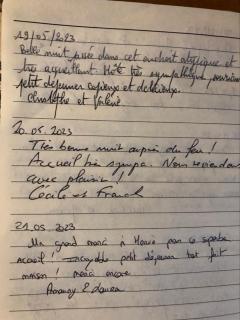 19/05/2023
Belle nuit passée dans cet endroit atypique et
très accueillant. Hôte très sympathique,
petit déjeuner copieux et délicieux.
Christophe et Valérie
20.05.2023
Très bonne nuit auprès du feu !
Accueil très sympa. Nous reviendrons
avec plaisir !
Cécile et Franck
21.05.2023
Un grand merci à pour ce superbe
accueil ! Incroyable petit déjeuner tout fait
maison ! merci encore
& Laura